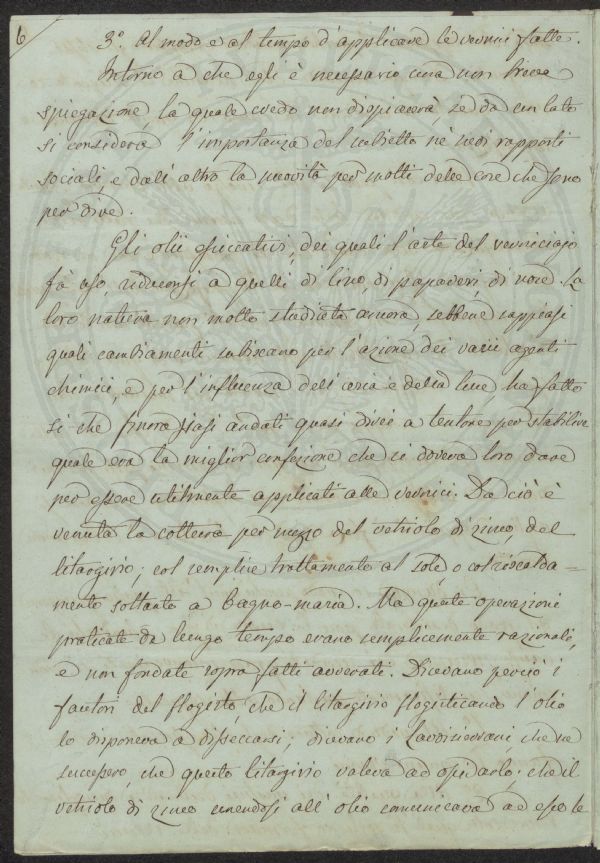 6
3.° Al modo e al tempo d'applicare le vernici fatte.
Intorno a che egli è necessario una non breve
spiegazione, la quale credo non dispiacerà, se da un lato
si considera l'importanza del subietto ne' suoi rapporti
sociali, e dall'altro la novità per molti delle cose che sono
per dire.
Gli olii essiccativi, dei quali l'arte del verniciajo
fà uso, riduconsi a quelli di lino, di papaveri, di noce. La
loro natura non molto studiata ancora, sebbene sappiasi
quali cambiamenti subiscano per l'azione dei varii agenti
chimici, e per l'influenza dell'aria e della luce, ha fatto
sì che finora siasi andati quasi direi a tentone per stabilire
quale era la miglior confezione che si doveva loro dare
per essere utilmente applicati alle vernici. Da ciò è
venuta la cottura per mezzo del vetriolo di zinco, del
litargirio; col semplice trattamento al sole, o col riscalda=
mento soltanto a bagno-maria. Ma queste operazioni
praticate da lungo tempo erano semplicemente razionali,
e non fondate sopra fatti avverati. Dicevano perciò i
fautori del flogisto, che il litargirio flogisticando l'olio
lo disponeva a disseccarsi; dicevano i Lavoisieriani, che ne
successero, che questo litargirio valeva ad ossidarlo; che il
vetriolo di zinco unendosi all'olio comunicava ad esso le